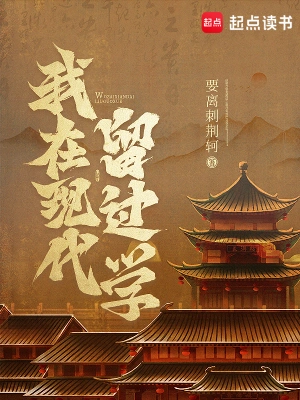 起点
起点读书
我在现代
留过学
WOZAIXIANDAI
LIUGUOXUE
要离刺荆轲
著